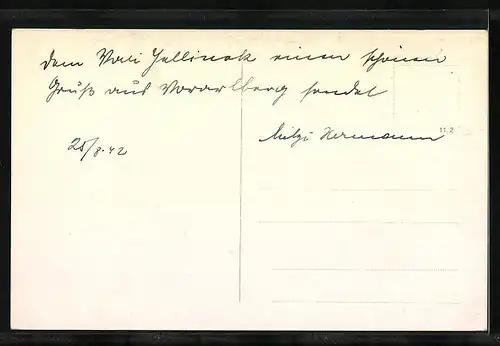 dem Vali Jellinek einen schönen
Gruß aus Vorarlberg sendet
Mitzi Hermann
25/8.42
11.2